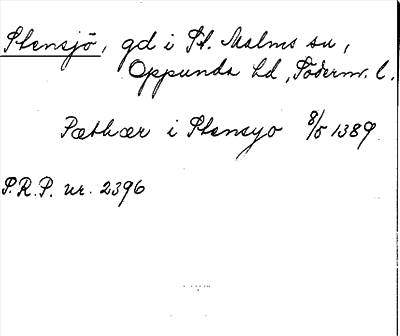 Stensjö, gd i St. Malms sn,
Oppunda hd, Söderm. l.
Pæthær i Stensyo 8/5 1389
S.R.P. nr. 2396